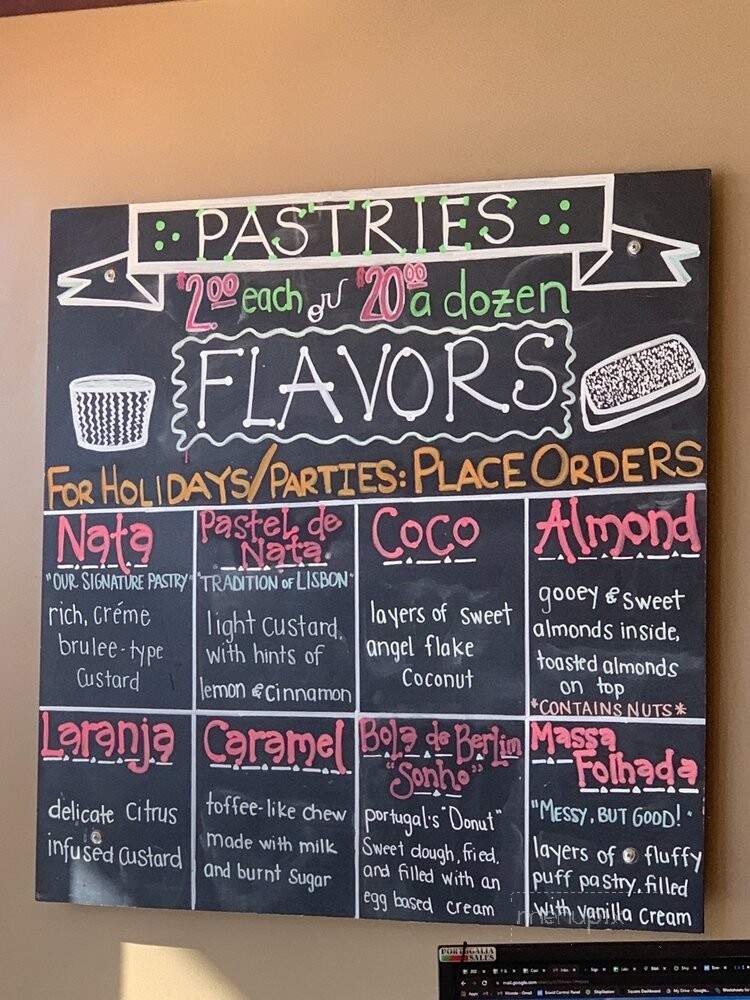 PASTRIES
$2.00 each or $20.00 a dozen
FLAVORS
FOR HOLIDAYS/PARTIES: PLACE ORDERS
Nata
"OUR SIGNATURE PASTRY"
rich, créme
brulee-type
Custard
Pastel de
Nata
"TRADITION OF LISBON"
light custard,
with hints of
lemon & Cinnamon
Coco
layers of sweet
angel flake
Coconut
Almond
gooey & sweet
almonds inside,
toasted almonds
on top
*CONTAINS NUTS*
Laranja
delicate Citrus
infused Custard
Caramel
toffee-like chew
made with milk
and burnt Sugar
Bola de Berlim
"Sonho"
portugal's "Donut"
Sweet dough, fried,
and filled with an
egg based cream
Massa
Folhada
"MESSY, BUT GOOD!"
layers of fluffy
puff pastry, filled
with vanilla Cream
menupix
PORTUGALIA
SALES
mail.google.com